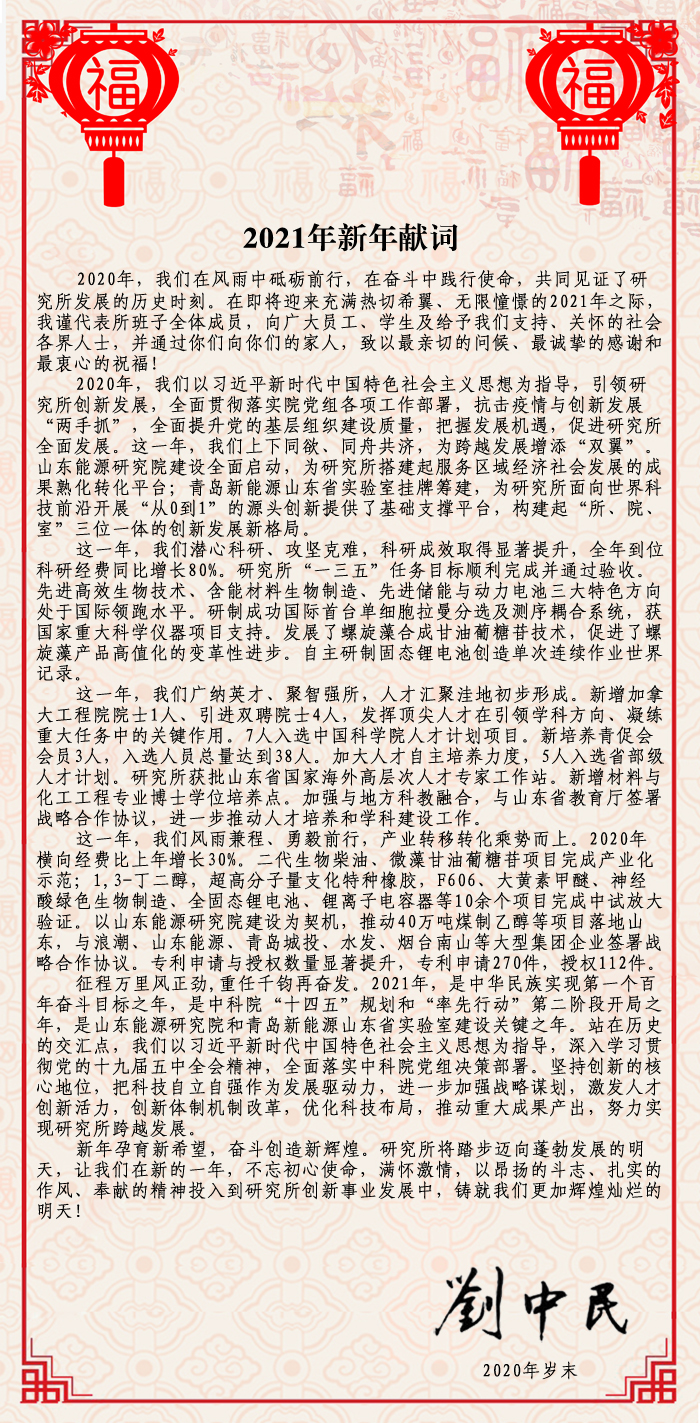 福
福
2021年新年献词
2020年，我们在风雨中砥砺前行，在奋斗中践行使命，共同见证了研
究所发展的历史时刻。在即将迎来充满热切希翼、无限憧憬的2021年之际，
我谨代表所班子全体成员，向广大员工、学生及给予我们支持、关怀的社会
各界人士，并通过你们向你们的家人，致以最亲切的问候、最诚挚的感谢和
最衷心的祝福！
2020年，我们以习近平新时代中国特色社会主义思想为指导，引领研
究所创新发展，全面贯彻落实院党组各项工作部署，抗击疫情与创新发展
“两手抓”，全面提升党的基层组织建设质量，把握发展机遇，促进研究所
全面发展。这一年，我们上下同欲、同舟共济，为跨越发展增添“双翼”。
山东能源研究院建设全面启动，为研究所搭建起服务区域经济社会发展的成
果熟化转化平台；青岛新能源山东省实验室挂牌筹建，为研究所面向世界科
技前沿开展“从0到1”的源头创新提供了基础支撑平台，构建起“所、院、
室”三位一体的创新发展新格局。
这一年，我们潜心科研、攻坚克难，科研成效取得显著提升，全年到位
科研经费同比增长80%。研究所“一三五”任务目标顺利完成并通过验收。
先进高效生物技术、含能材料生物制造、先进储能与动力电池三大特色方向
处于国际领跑水平。研制成功国际首台单细胞拉曼分选及测序耦合系统，获
国家重大科学仪器项目支持。发展了螺旋藻合成甘油葡糖苷技术，促进了螺
旋藻产品高值化的变革性进步。自主研制固态锂电池创造单次连续作业世界
记录。
这一年，我们广纳英才、聚智强所，人才汇聚洼地初步形成。新增加拿
大工程院院士1人、引进双聘院士4人，发挥顶尖人才在引领学科方向、凝练
重大任务中的关键作用。7人入选中国科学院人才计划项目。新培养青促会
会员3人，入选人员总量达到38人。加大人才自主培养力度，5人入选省部级
人才计划。研究所获批山东省国家海外高层次人才专家工作站。新增材料与
化工工程专业博士学位培养点。加强与地方科教融合，与山东省教育厅签署
战略合作协议，进一步推动人才培养和学科建设工作。
这一年，我们风雨兼程、勇毅前行，产业转移转化乘势而上。2020年
横向经费比上年增长30%。二代生物柴油、微藻甘油葡糖苷项目完成产业化
示范；1,3-丁二醇，超高分子量支化特种橡胶，F606、大黄素甲醚、神经
酸绿色生物制造、全固态锂电池、锂离子电容器等10余个项目完成中试放大
验证。以山东能源研究院建设为契机，推动40万吨煤制乙醇等项目落地山
东，与浪潮、山东能源、青岛城投、水发、烟台南山等大型集团企业签署战
略合作协议。专利申请与授权数量显著提升，专利申请270件，授权112件。
征程万里风正劲，重任千钧再奋发。2021年，是中华民族实现第一个百
年奋斗目标之年，是中科院“十四五”规划和“率先行动”第二阶段开局之
年，是山东能源研究院和青岛新能源山东省实验室建设关键之年。站在历史
的交汇点，我们以习近平新时代中国特色社会主义思想为指导，深入学习贯
彻党的十九届五中全会精神，全面落实中科院党组决策部署。坚持创新的核
心地位，把科技自立自强作为发展驱动力，进一步加强战略谋划，激发人才
创新活力，创新体制机制改革，优化科技布局，推动重大成果产出，努力实
现研究所跨越发展。
新年孕育新希望，奋斗创造新辉煌。研究所将踏步迈向蓬勃发展的明
天，让我们在新的一年，不忘初心使命，满怀激情，以昂扬的斗志、扎实的
作风、奉献的精神投入到研究所创新事业发展中，铸就我们更加辉煌灿烂的
明天！
劉中民
2020年岁末